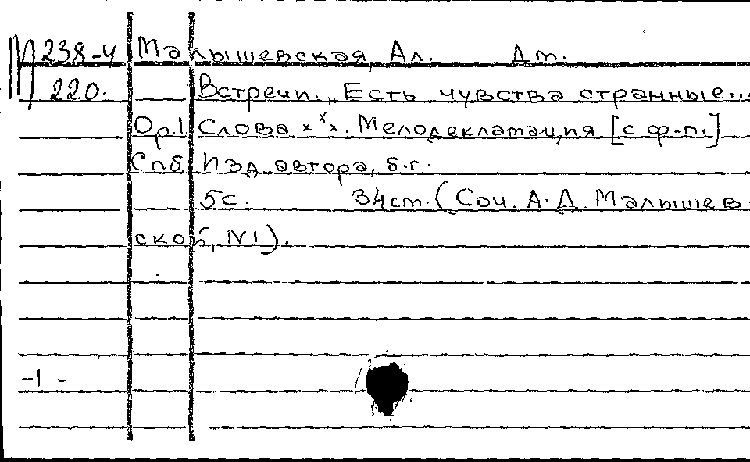 238-4 Малышевская, Ал. Дм.
220. Встречи. Есть чувства странные...
Op.1 Слова xˣx. Мелодекламация [с ф-п.]
Спб Изд. автора, б.г.
5с. 34см. (Соч. А. Д. Малышев-
ской, №1).
-1-